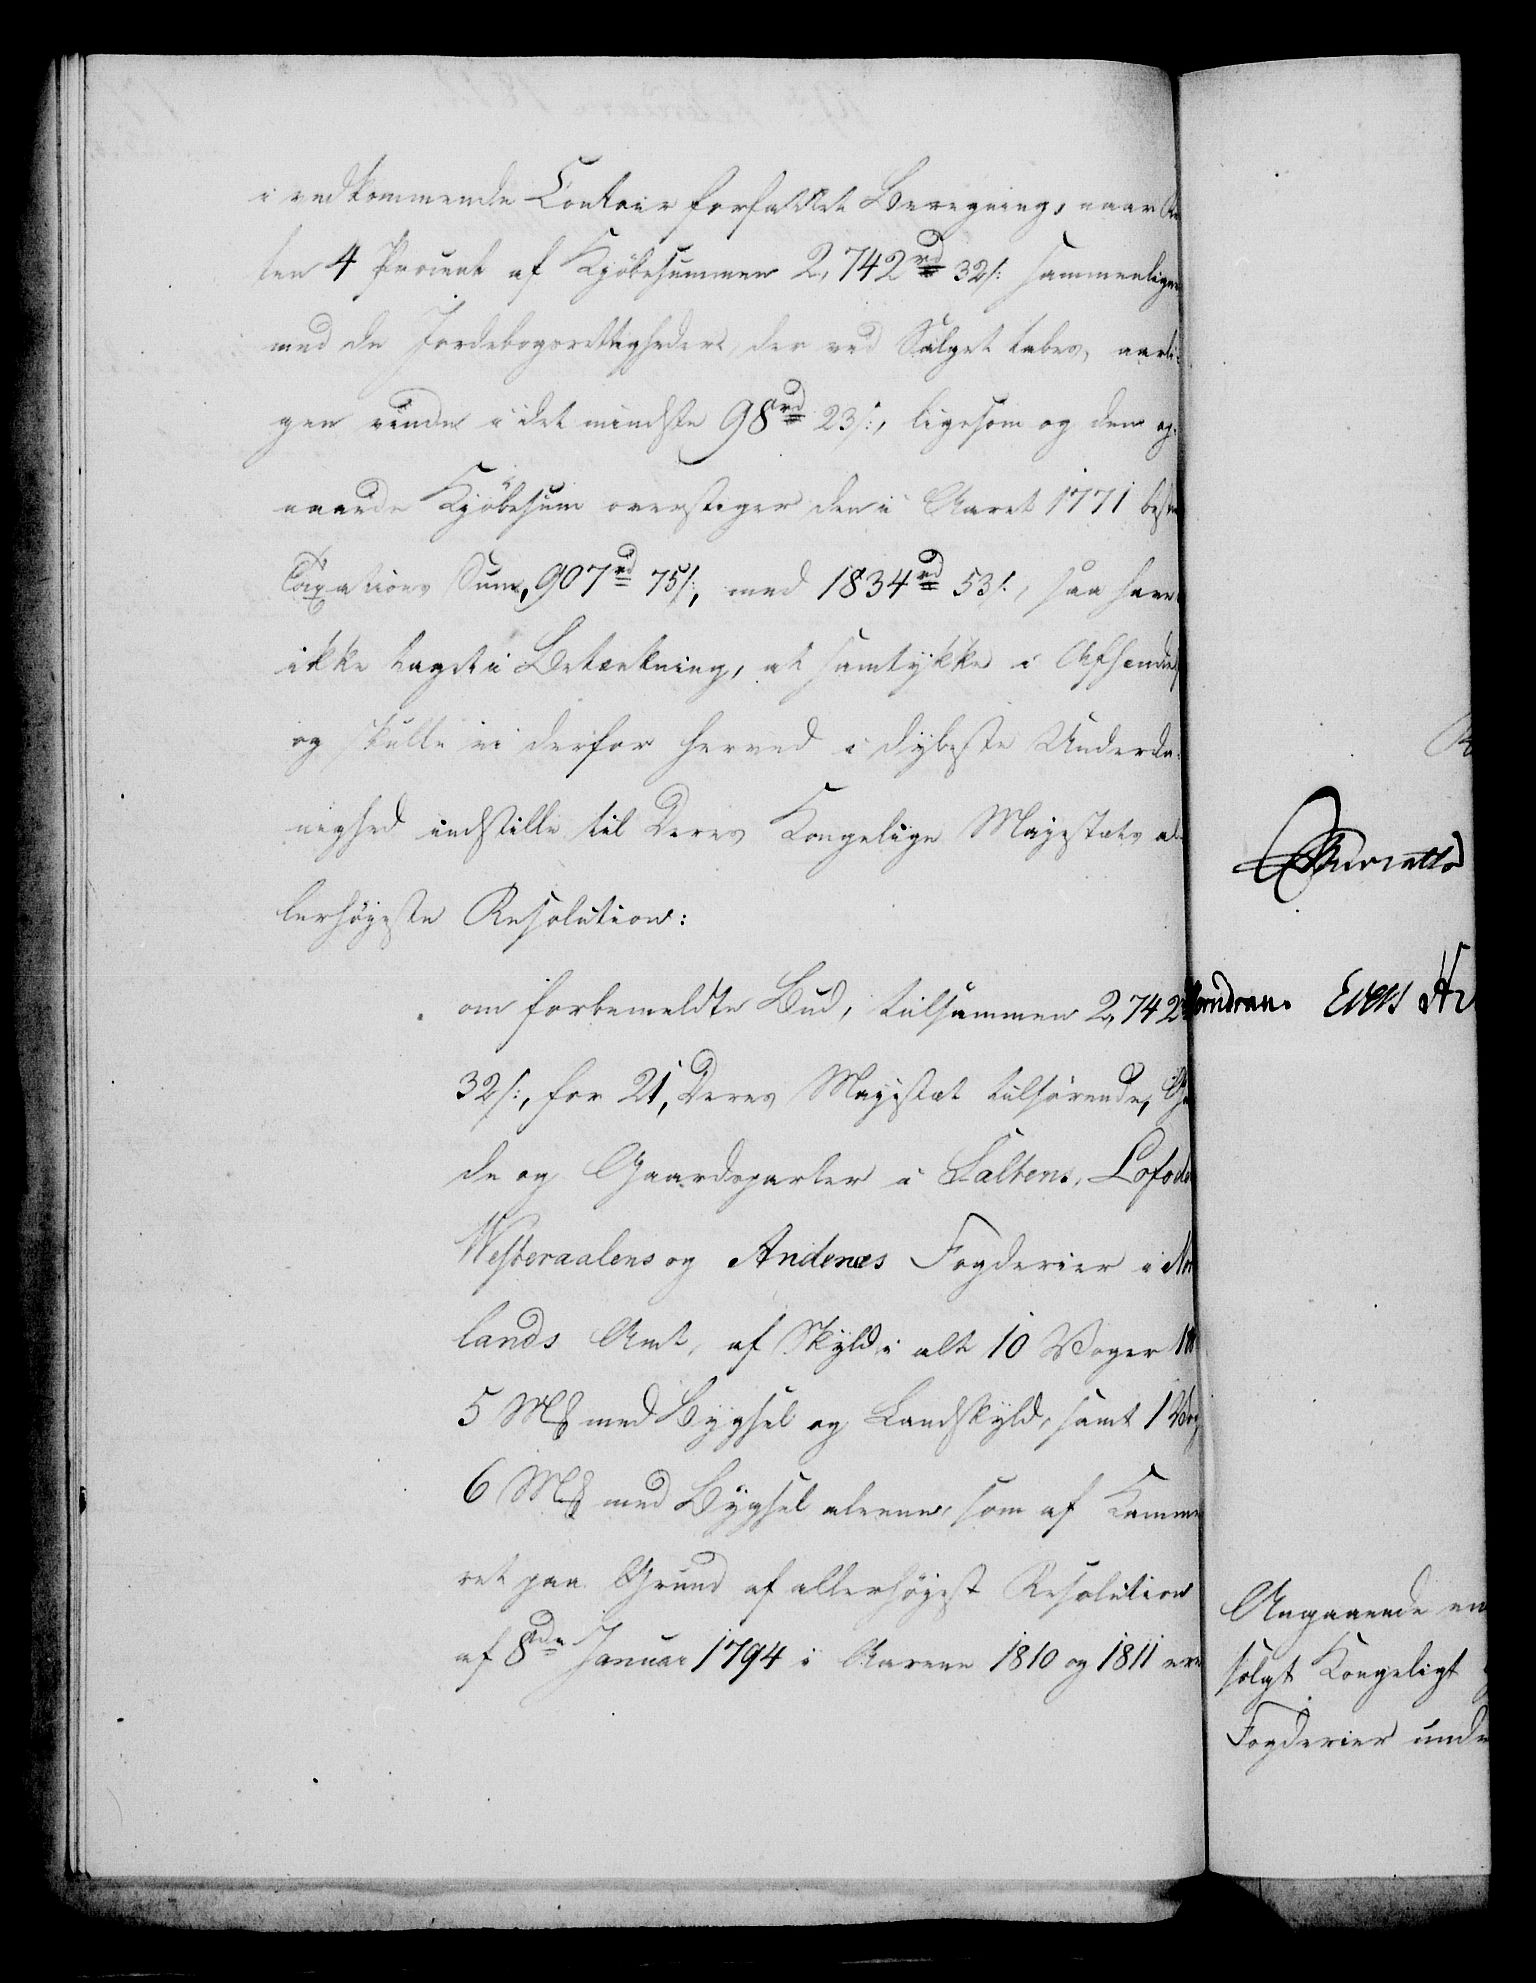 i vedkommende Contoir forfattet Beregning, naar Ren
ten 4 Procent af Kjøbesummen 2,742 rd 32 s: sammenlignes
med de Jordebogsrettigheder, der ved Salget tabes, aarli-
gen vinder i det mindste 98 rd 23 s:, ligesom og den op-
naaede Kjøbesum overstiger den i Aaret 1771 bestem
Taxations Sum, 907 rd 75 s:, med 1834 rd 53 s:, saa have
ikke taget i Betænkning, at samtykke i Afhændel
og skulle vi derfor herved i dybeste Underda-
nighed indstille til Deres Kongelige Majestæts al-
lerhøyeste Resolution:
om forbemeldte Bud, tilsammen 2,742
32 s:, for 21, Deres Majestæt tilhørende, Gaar
de og Gaardsparter i Saltens, Lofode
Westeraalens og Andenæs Fogderier i Nor
lands Amt, af Skyld i alt 10 Woger
5 M℔ med Bygsel og Landskyld, samt 1 Wog
6 M℔ med Bygsel alleene, som af Kamme
ret paa Grund af allerhøyest Resolution
af 8de Januar 1794 i Aarene 1810 og 1811 ere
Angaaende en
solgt Kongeligt
Fogderier unde